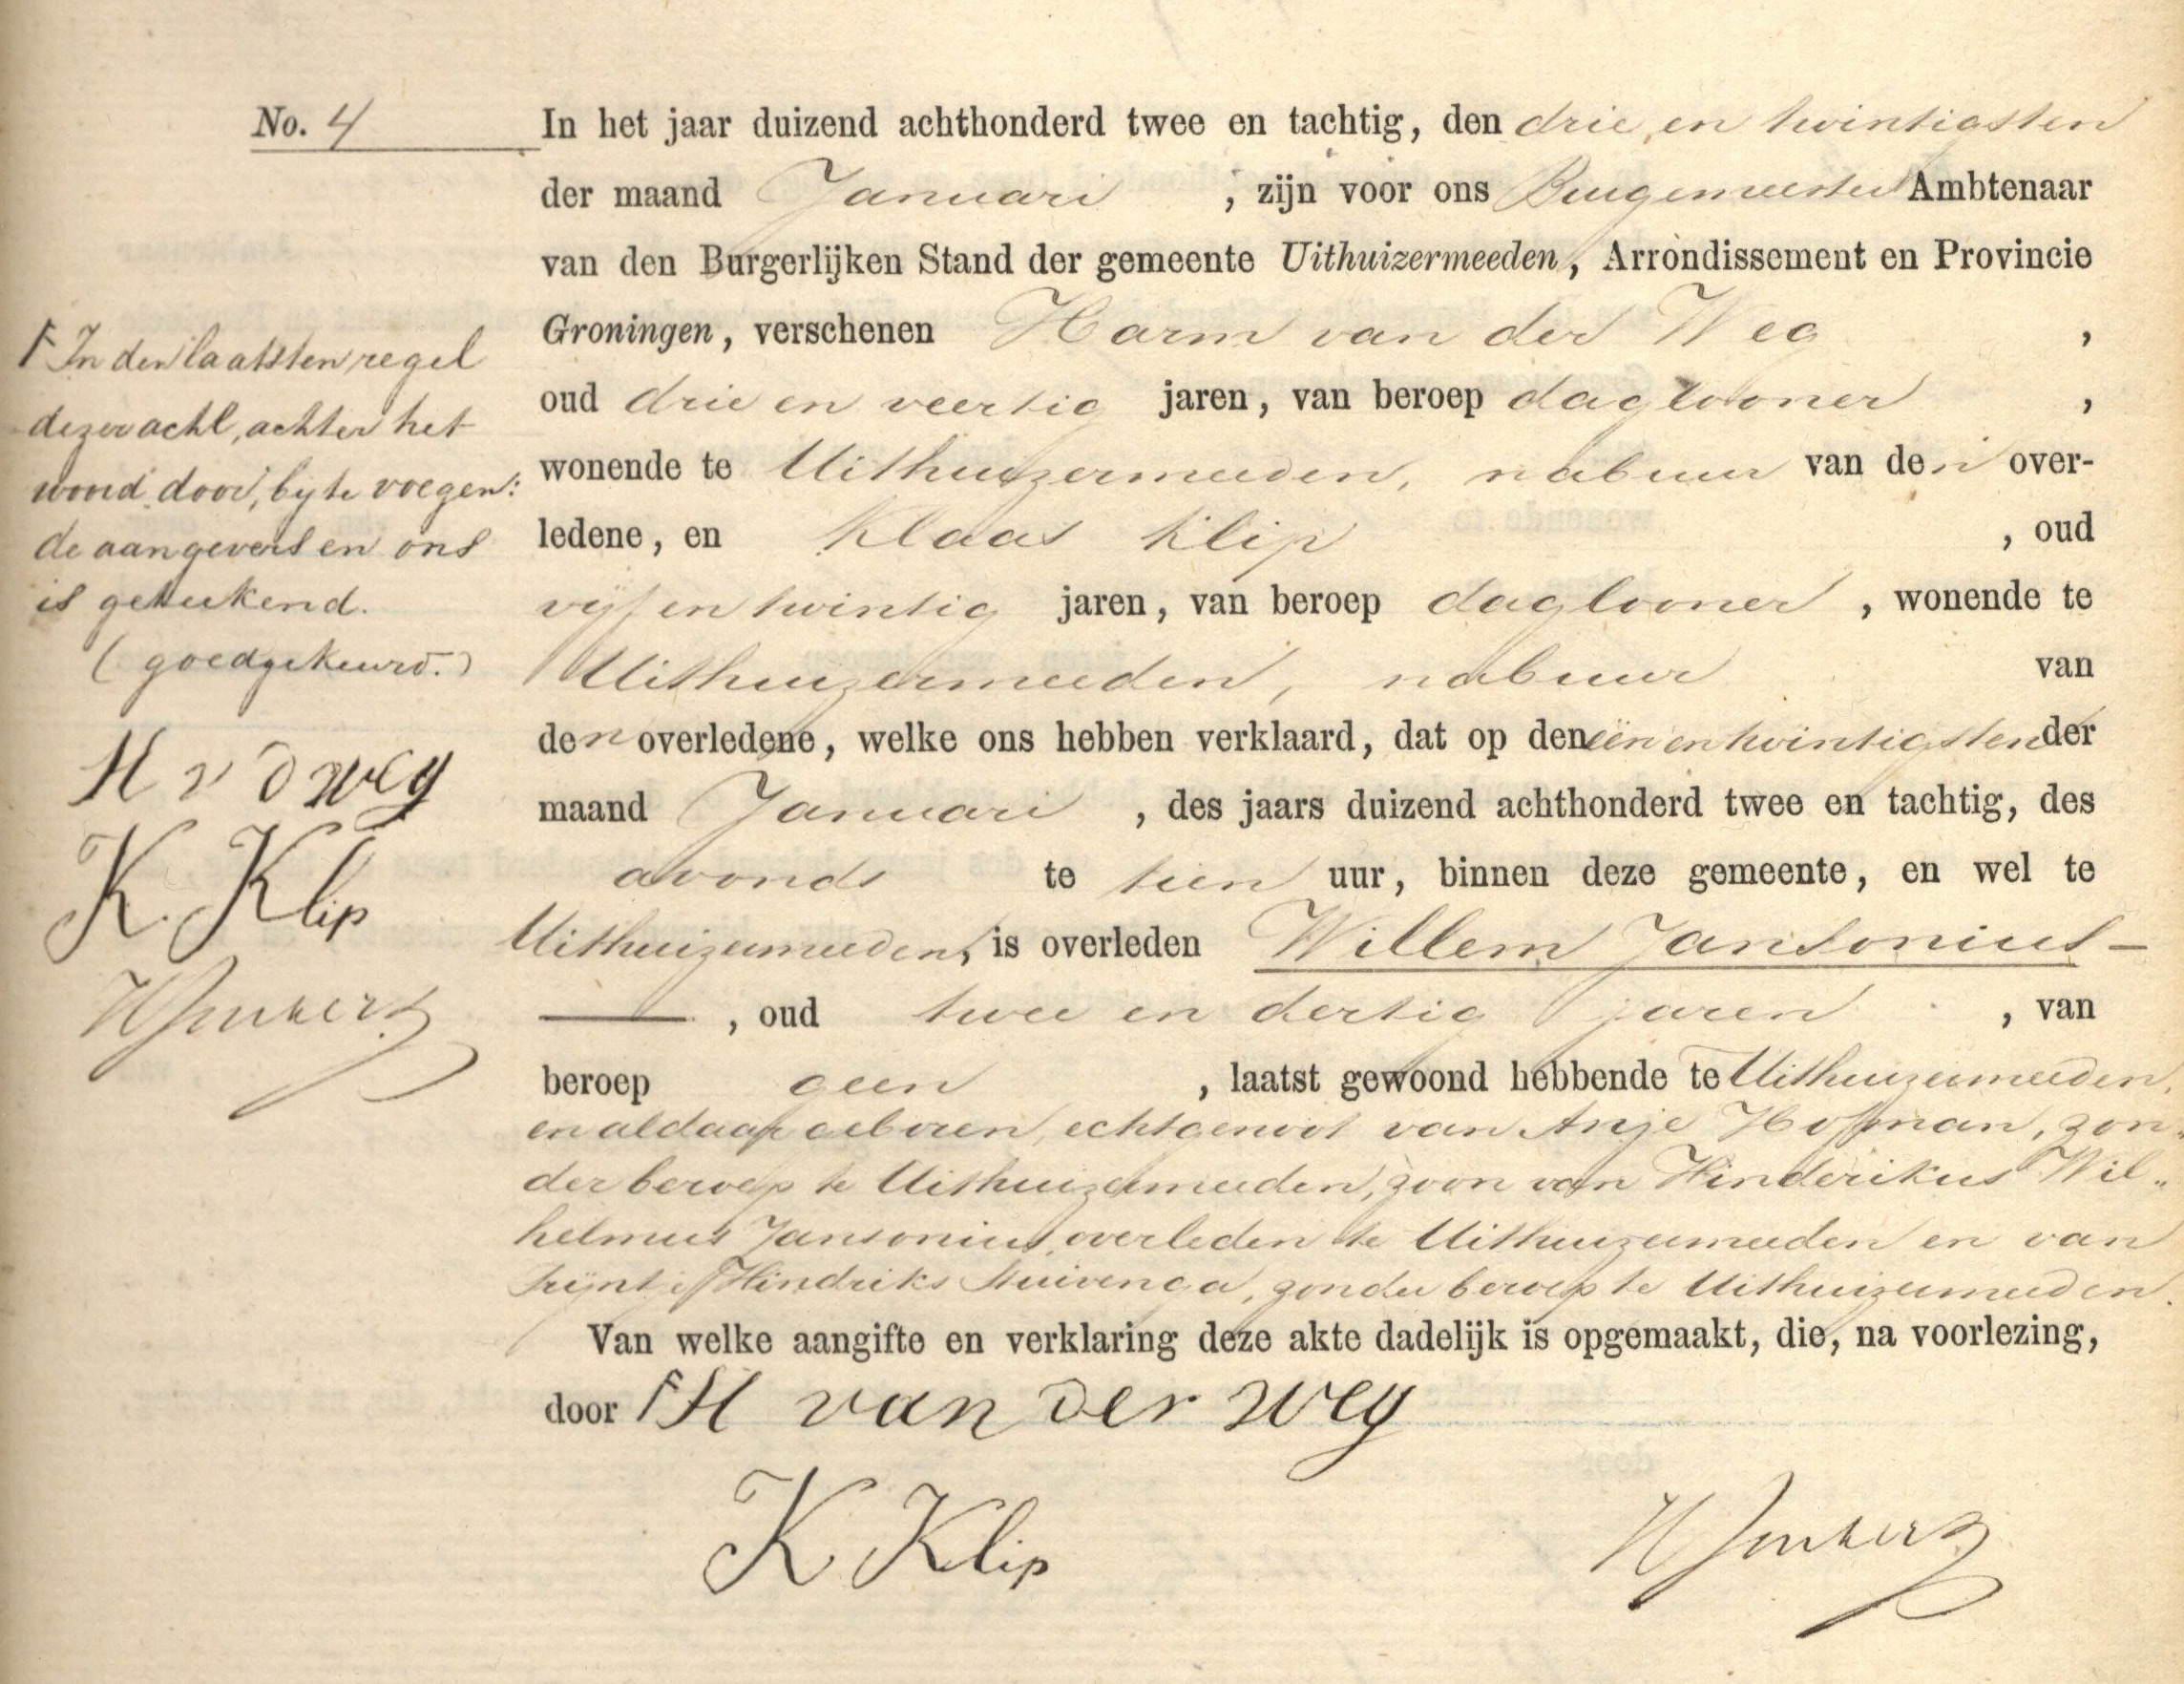 No. 4
In het jaar duizend achthonderd twee en tachtig, den drie en twintigsten
der maand Januari , zijn voor ons Burgemeester Ambtenaar
van den Burgerlijken Stand der gemeente Uithuizermeeden, Arrondissement en Provincie
Groningen, verschenen Harm van der Weg ,
oud drie en veertig jaren, van beroep daglooner ,
wonende te Uithuizermeeden, nabuur van den over-
ledene, en Klaas Klip , oud
vijf en twintig jaren, van beroep daglooner , wonende te
Uithuizermeeden, nabuur van
den overledene, welke ons hebben verklaard, dat op den eenentwintigsten der
maand Januari , des jaars duizend achthonderd twee en tachtig, des
avonds te tien uur, binnen deze gemeente, en wel te
Uithuizermeeden, is overleden Willem Jansonius —
—— , oud twee en dertig jaren , van
beroep geen , laatst gewoond hebbende te Uithuizermeeden,
en aldaar geboren, echtgenoot van Anje Hofman, zon„
der beroep te Uithuizermeeden, zoon van Hinderikus Wil„
helmus Jansonius, overleden te Uithuizermeeden en van
Trijntje Hindriks Stuivenga, zonder beroep te Uithuizermeeden.
Van welke aangifte en verklaring deze akte dadelijk is opgemaakt, die, na voorlezing,
door H van der Weg
K Klip
In den laatsten regel
dezer acht, achter het
woord door, by te voegen:
de aangevers en ons
is geteekend.
(goedgekeurd.)
H v d Weg
K. Klip